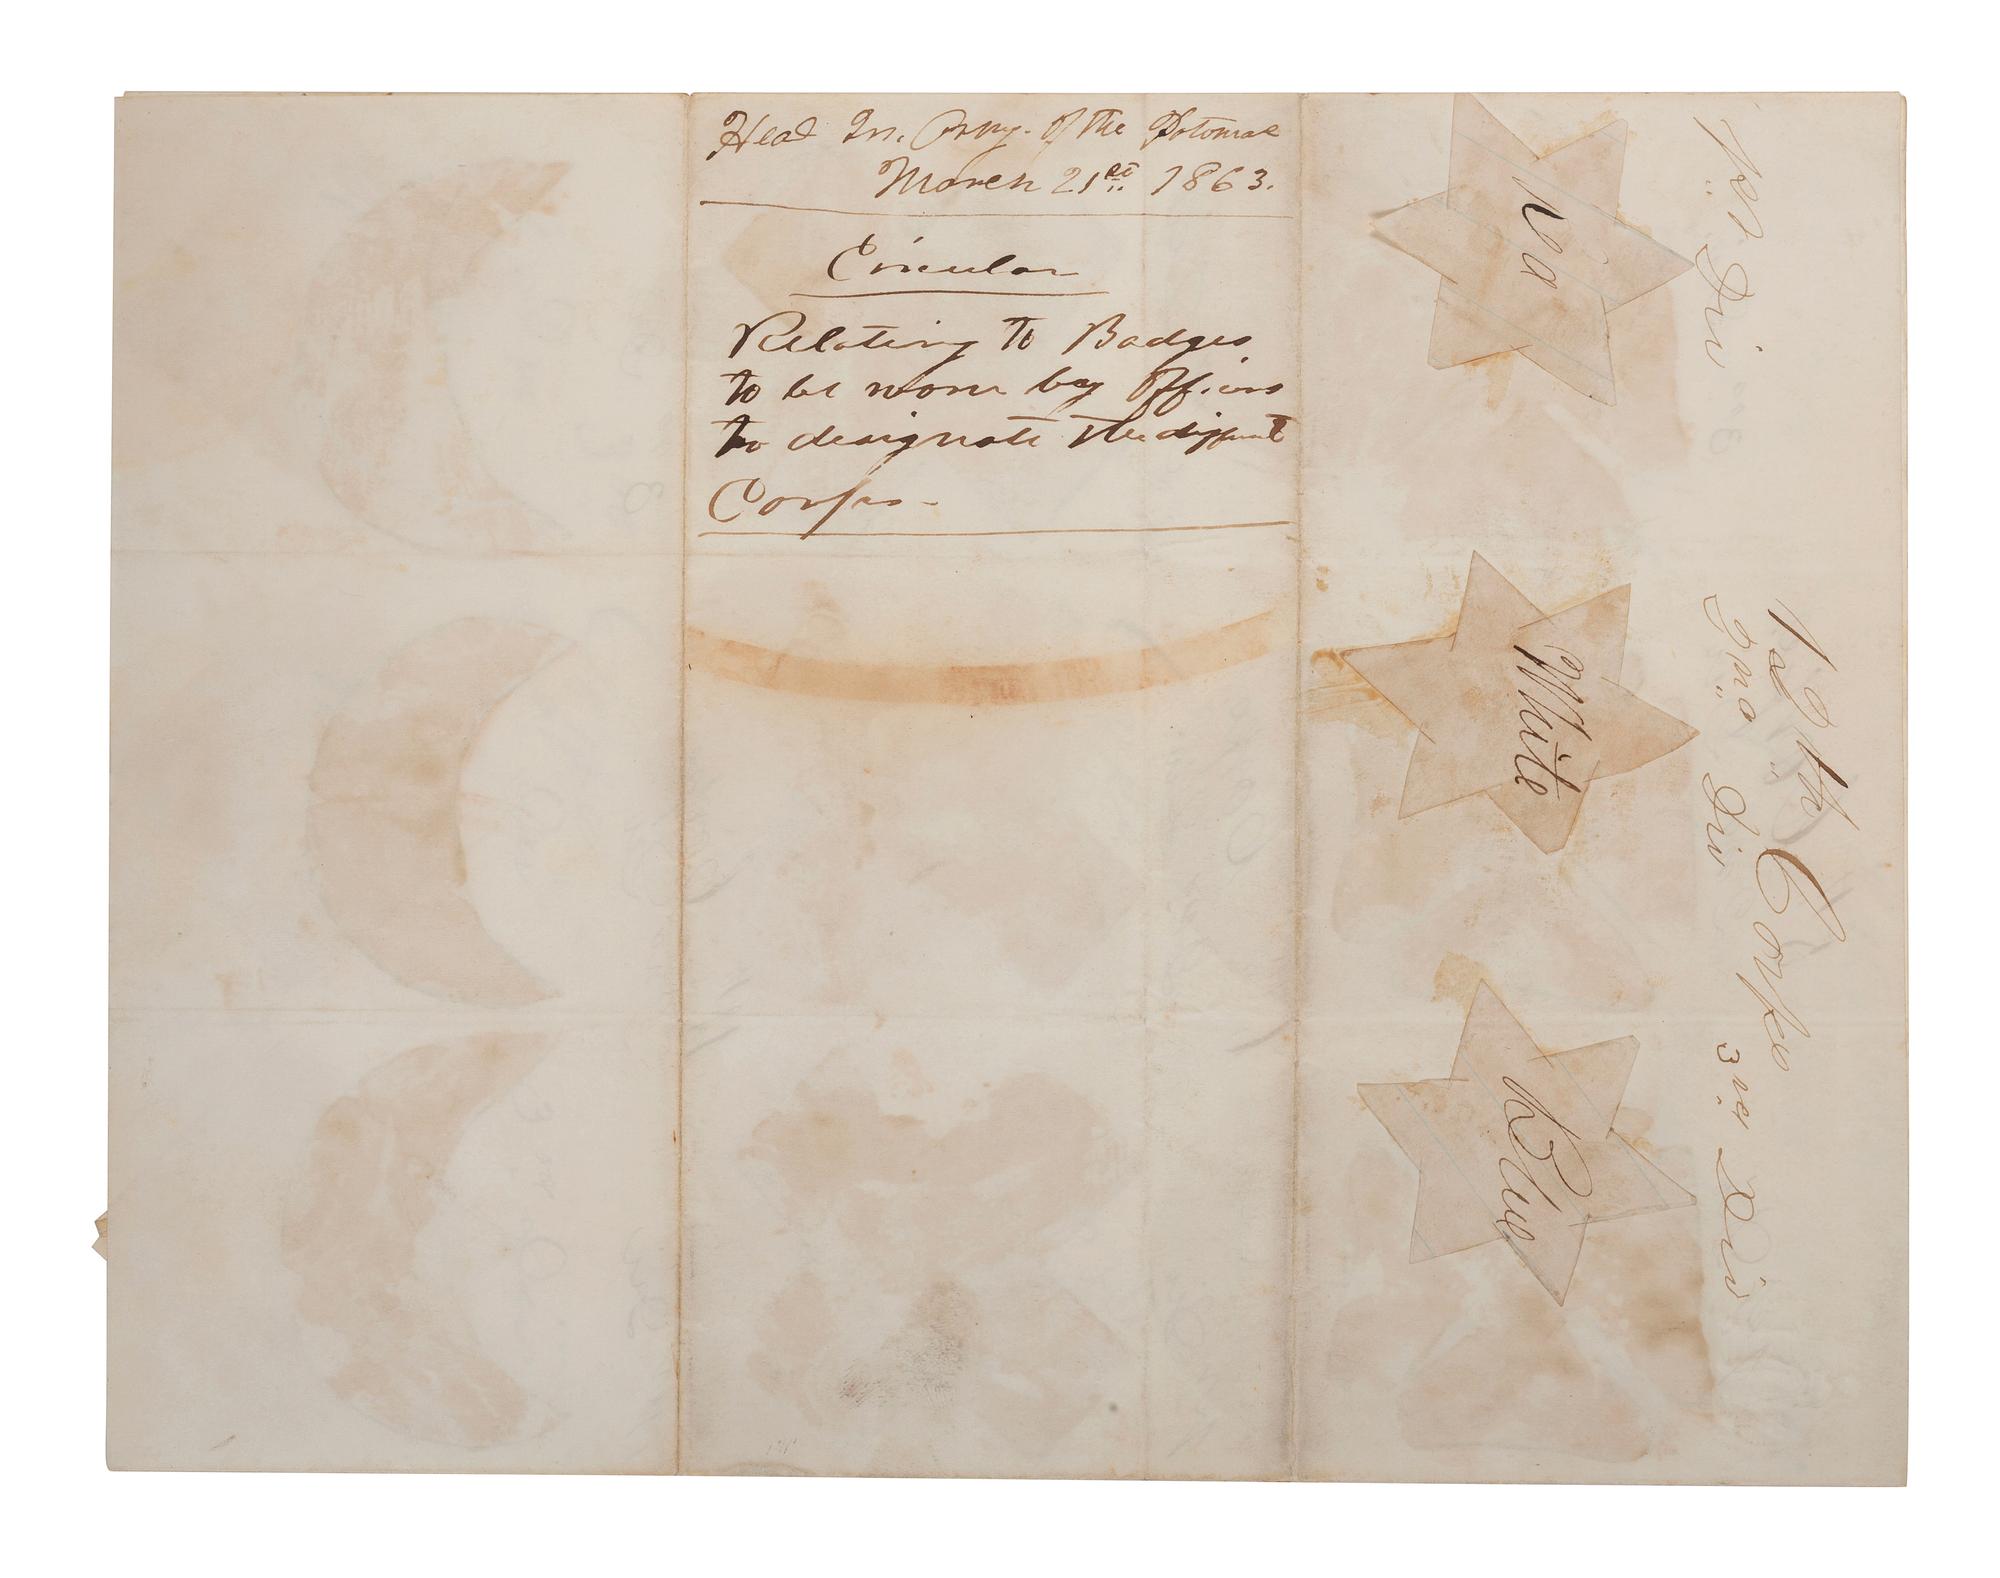 Head Qrs. Army. Of the Potomac
March 21st 1863.
Circular
Relating to Badges
to be worn by Officers
to designate the different
Corps-
12th Corps
1st Div
2nd Div
3rd Div
Red
White
Blue